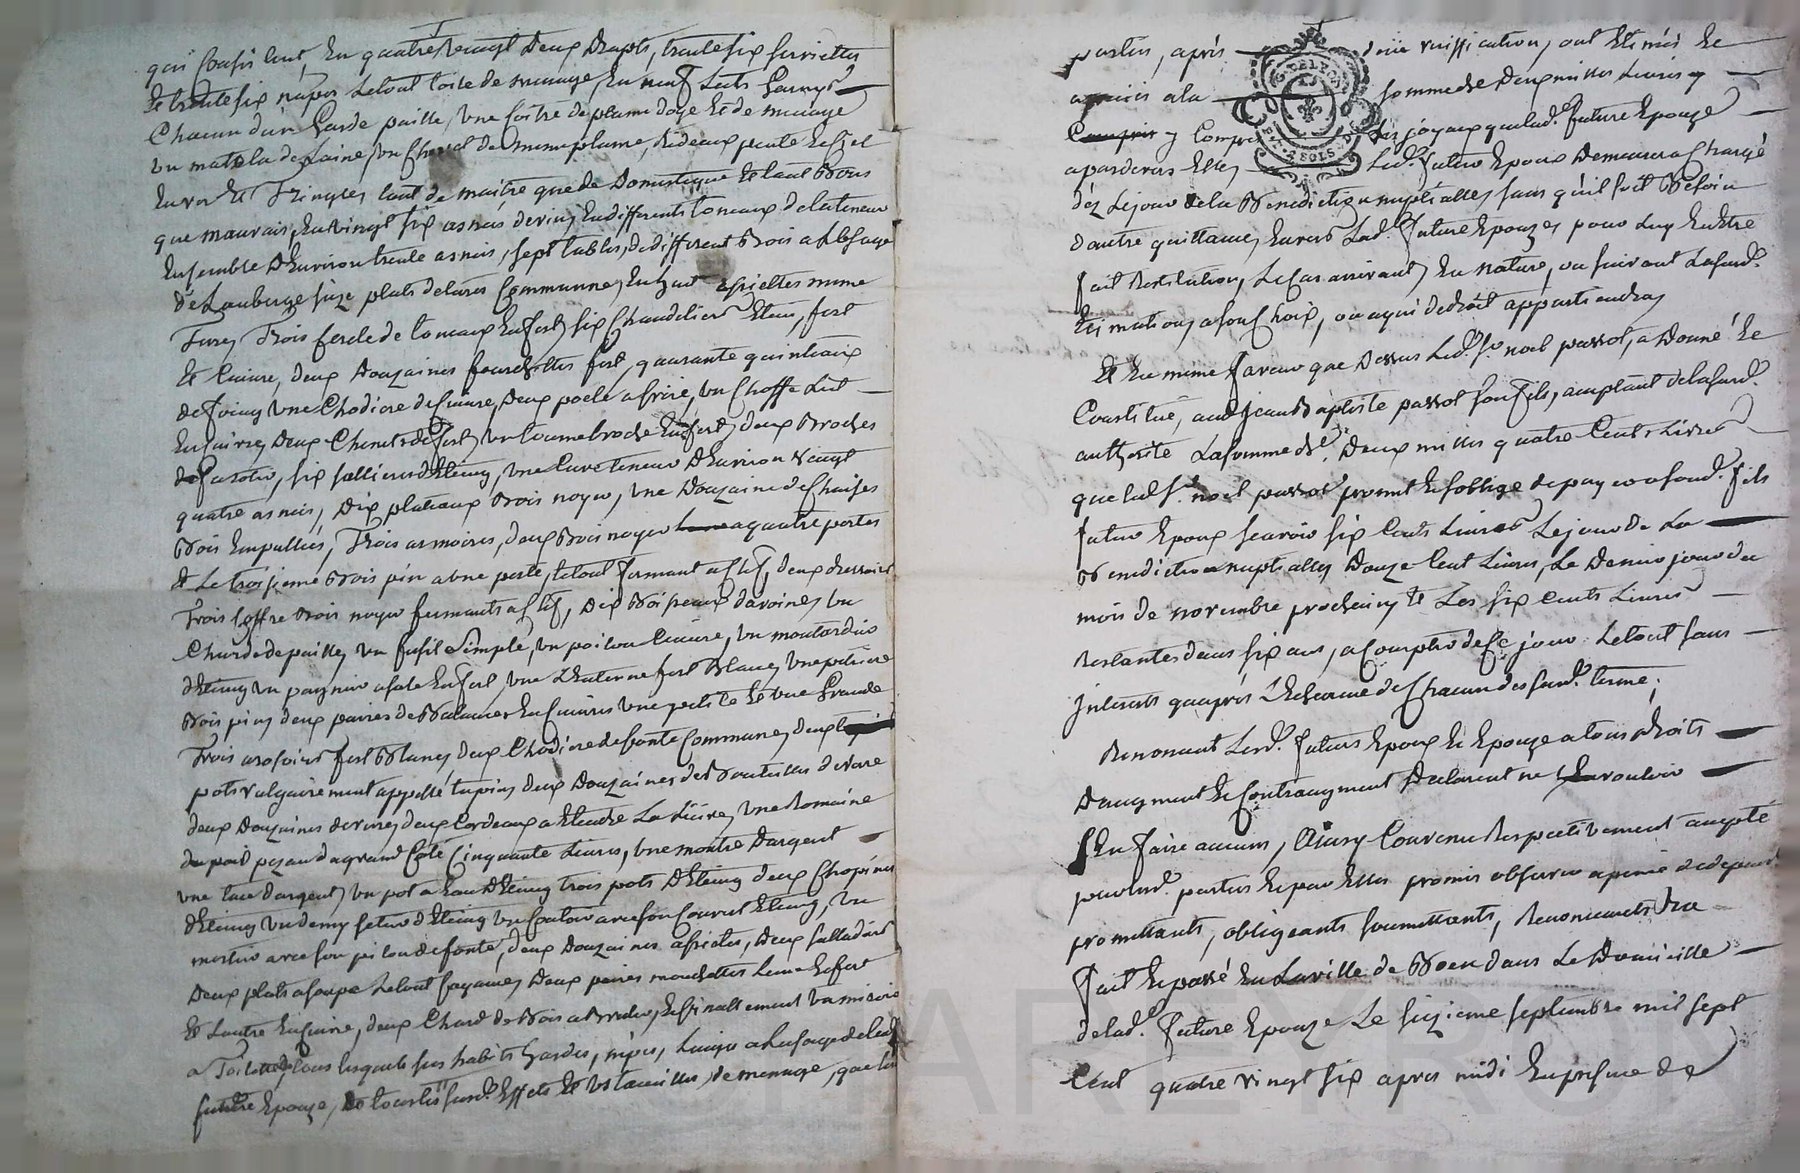 qui Consistent, En quatre vingt Deux Draps, trente six serviettes
Et trente six napes Letout toile de menage, En neuf Lits Garnys
Chacun d'un Garde paille, une Coitre de plume doye Et de menage
un matela de Laine, un Chevet de meme plume, Rideaux pente
tant de maitre que de Domestique Et tant Bons
que mauvais, En vingt six asnées de vin, En differents toneaux de la teneur
Ensemble D'Environ trente asnées, sept tables, de different Bois a L'usage
de L'auberge seize plats de terre Commune, assiettes meme
Terre, Trois sercle de toneaux En fert, six Chandeliers Etain, fert
Et Cuivre, deux Douzaines fourchettes fert, quarante quinteaux
de foin, une Chodiere de Cuivre, Deux poele a frire, un Choffe Lit
En Cuivre, Deux Chenets de fert, un tournebroche En fert, deux Broches
six sallieres d'Etaing, une Cuve teneur D'Environ vingt
quatre asnées, Dix plateaux Bois noyer, une Douzaine de Chaises
Bois Empallies, Trois armoires, deux Bois noyer a quatre portes
Et Le troisieme Bois pin a une porte, letout fermant a Clef, deux dressoirs
Trois Coffre Bois noyer fermants a Clef, Dix Boisseaux d'avoine, un
Chard de paille, un fusil Simple, un poilon Cuivre, un moutardier
d'Etaing un En fert, une L'enterne fert Blanc, une petriere
Bois pin, deux paires de Balances En Cuivre une petite Et une Grande
Trois arosoirs fert Blanc, deux Chodiere de fonte Commune, deux
pots vulgairement appellé tupin, deux Douzaines de Bouteilles de verre
deux Douzaines de verre, deux Cordeaux a Etendre La Lissive, une Romaine
de poid pezant du grand Coté Cinquante Livres, une montre D'argent
une tace d'argent, un pot a Eau D'Etaing trois pots D'Etaing deux Chopines
d'Etaing un demy setier d'Etaing un avec son Couvert Etaing, un
mortier avec son pilon de fonte, deux Douzaines assiettes, Deux salladiers
Deux plats a soupe Letout fayance, Deux paires mouchettes L'une En fert
Et L'autre En Cuivre, deux Chard de Bois a Bruler, Et finallement un miroir
a Toilette, tous lesquels sus habits hardes, nipes, Linge a L'usage de lad.
future Epouze, Et tous les susd. Effets Et Ustancilles de menage, que les
parties, après duë vuiffication, ont Etimés Et
apreciés a la sommede Deux milles Livres, y
Compris y Compris les joyaux que lad. future Epouze
apardevers Elle, Led. futur Epoux Demeurera Chargé
dez Lejour de la Benediction nuptialle, sans qu'il soit Besoin
d'autre quittance, Envers Lad. future Epouze, pour Luy En Etre
fait Restitution, Le Cas arrivant, En nature, ou suivant Lasusd.
Etimation, a son Choix, ou a qui de droit appartiendra,
Et En meme faveur que Dessus Led. Sr. noel passot, a Donné Et
Constitué, aud. jean Baptiste passot son fils, acceptant de lasusd.
authorité Lasomme de Deux milles quatre Cents Livres
que led. Sr. noel passot promet Et s'oblige de payer a sond. fils
futur Epoux scavoir six Cents Livres Lejour de La
Benediction nuptialle, Douze Cent Livres, Le Dernier jour du
mois de novembre prochain, Et Les six Cents Livres
Restantes dans six ans, a Compter de Ce jour. Letout sans
Interets qu'après L'Echeance de Chacun des susd. terme;
Renoncent Lesd. futurs Epoux Et Epouze a tous droits
D'augment Et Contraugment Declarant ne En vouloir
En faire aucuns, Ainsy Convenu Respectivement accepté
par lesd. parties Et par Elles promis observer a peine de depens
promettants, obligeants soumettants, Renonceants &ca
fait Et passé En La ville de Boen dans Le Domicille
de lad. future Epouze Le sizieme septembre mil sept
Cent quatre vingt six apres midi En presence de